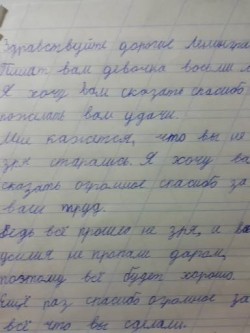 Здравствуйте дорогие
Пишет вам девочка восьми
Я хочу Вам сказать спасибо
пожелать вам удачи.
Мне кажется, что вы не
зря старались. Я хочу
сказать огромное спасибо за
ваш труд.
Ведь всё прошло не зря, и
усилия не пропали даром,
поэтому всё будет хорошо.
Ещё раз спасибо огромное за
всё что вы сделали.